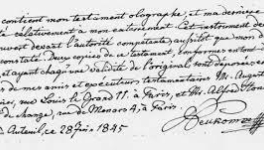 contient mon testament olographe, et ma dernière
relativement à mon enterrement. Cet testament de
devant l'autorité compétente, aussitôt que mon d
constaté. Deux copies de ce testament, conformes en tout
et ayant chacune validité de l'original, sont déposées en
de mes amis et exécuteurs testamentaires Mr. August
rue Louis le Grand 11, à Paris, et Mr. Alfred
de change, rue de Menars 4, à Paris.
Auteuil, ce 28 1845